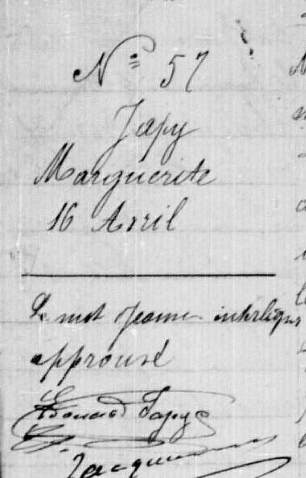 N° 57
Japy
Marguerite
16 Avril
Le mot Jeanne interligne
approuvé
Edouard Japy
Jacque